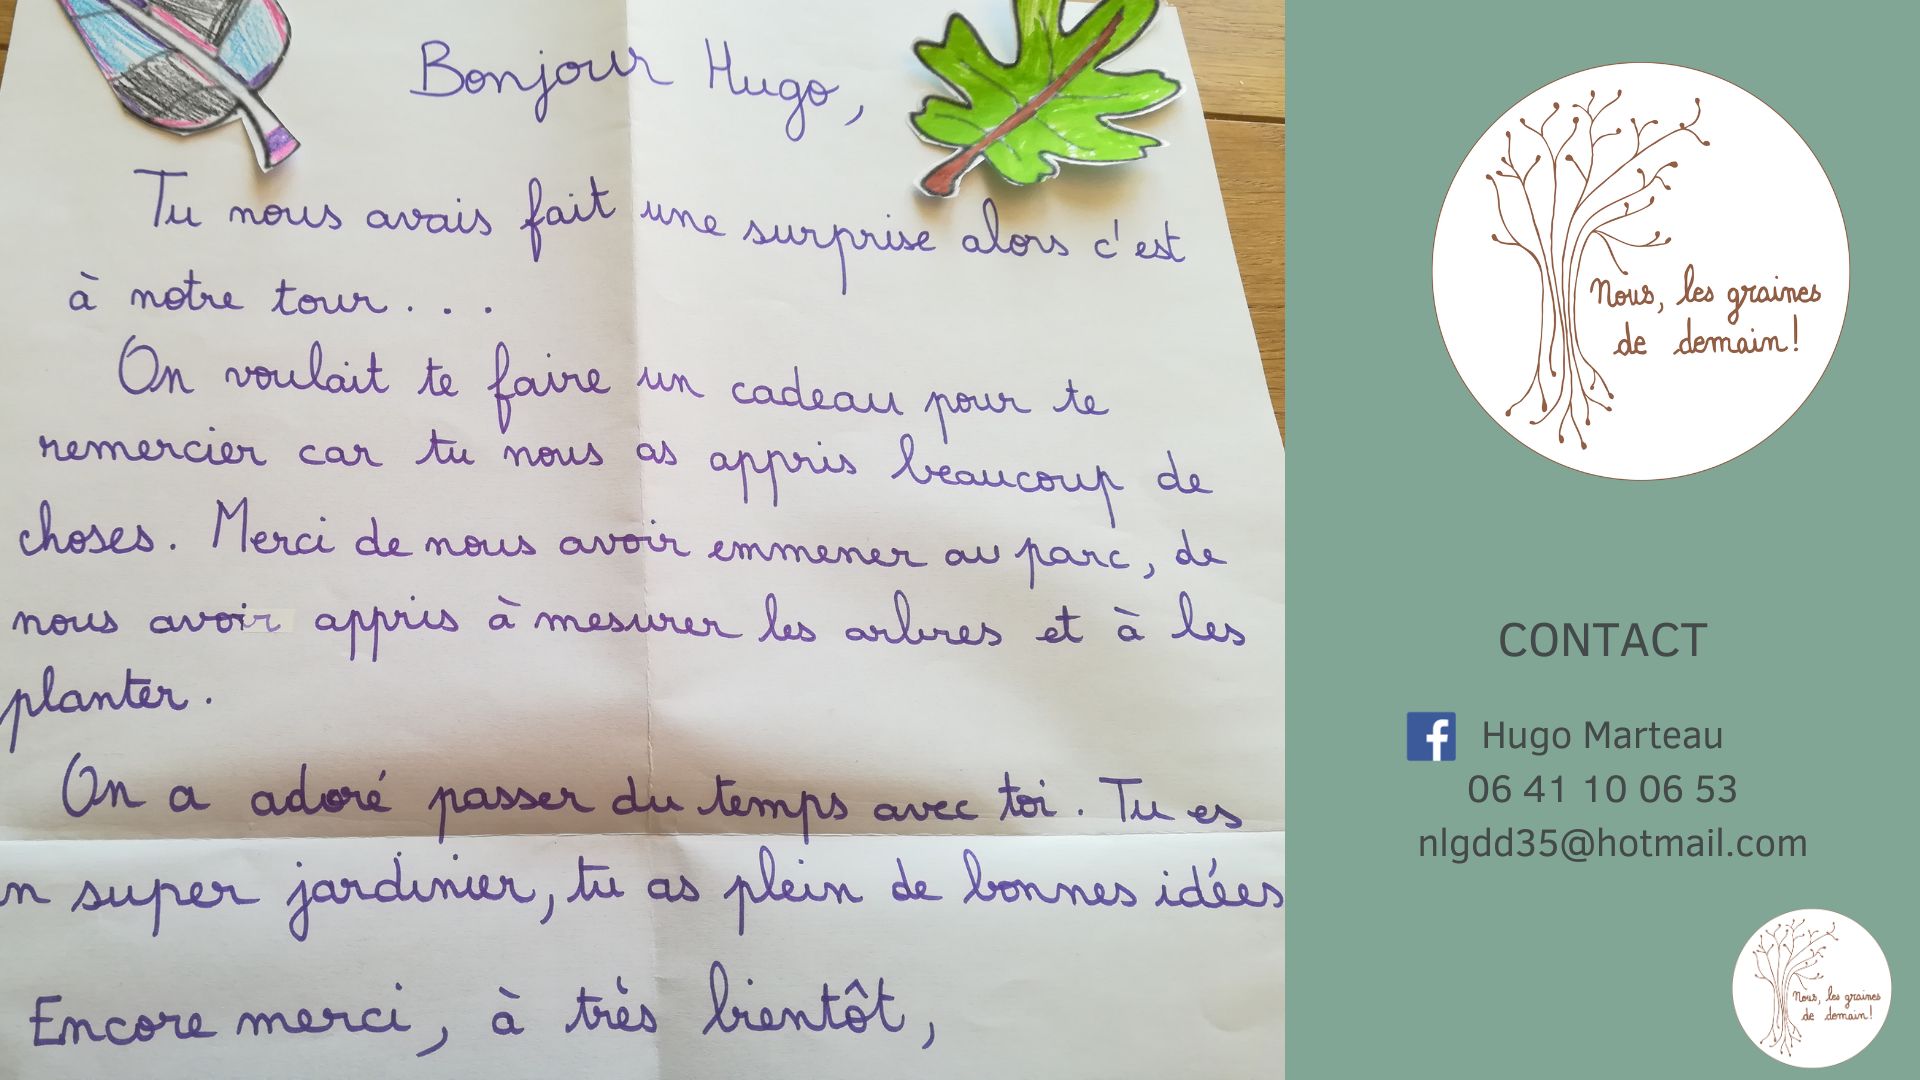 Bonjour Hugo,
Tu nous avais fait une surprise alors c'est
à notre tour...
On voulait te faire un cadeau pour te
remercier car tu nous as appris beaucoup de
choses. Merci de nous avoir emmener au parc, de
nous avoir appris à mesurer les arbres et à les
planter.
On a adoré passer du temps avec toi. Tu es
n super jardinier, tu as plein de bonnes idées
Encore merci, à très bientôt,
Nous, les graines
de demain!
CONTACT
Hugo Marteau
06 41 10 06 53
nlgdd35@hotmail.com
Nous, les graines
de demain!